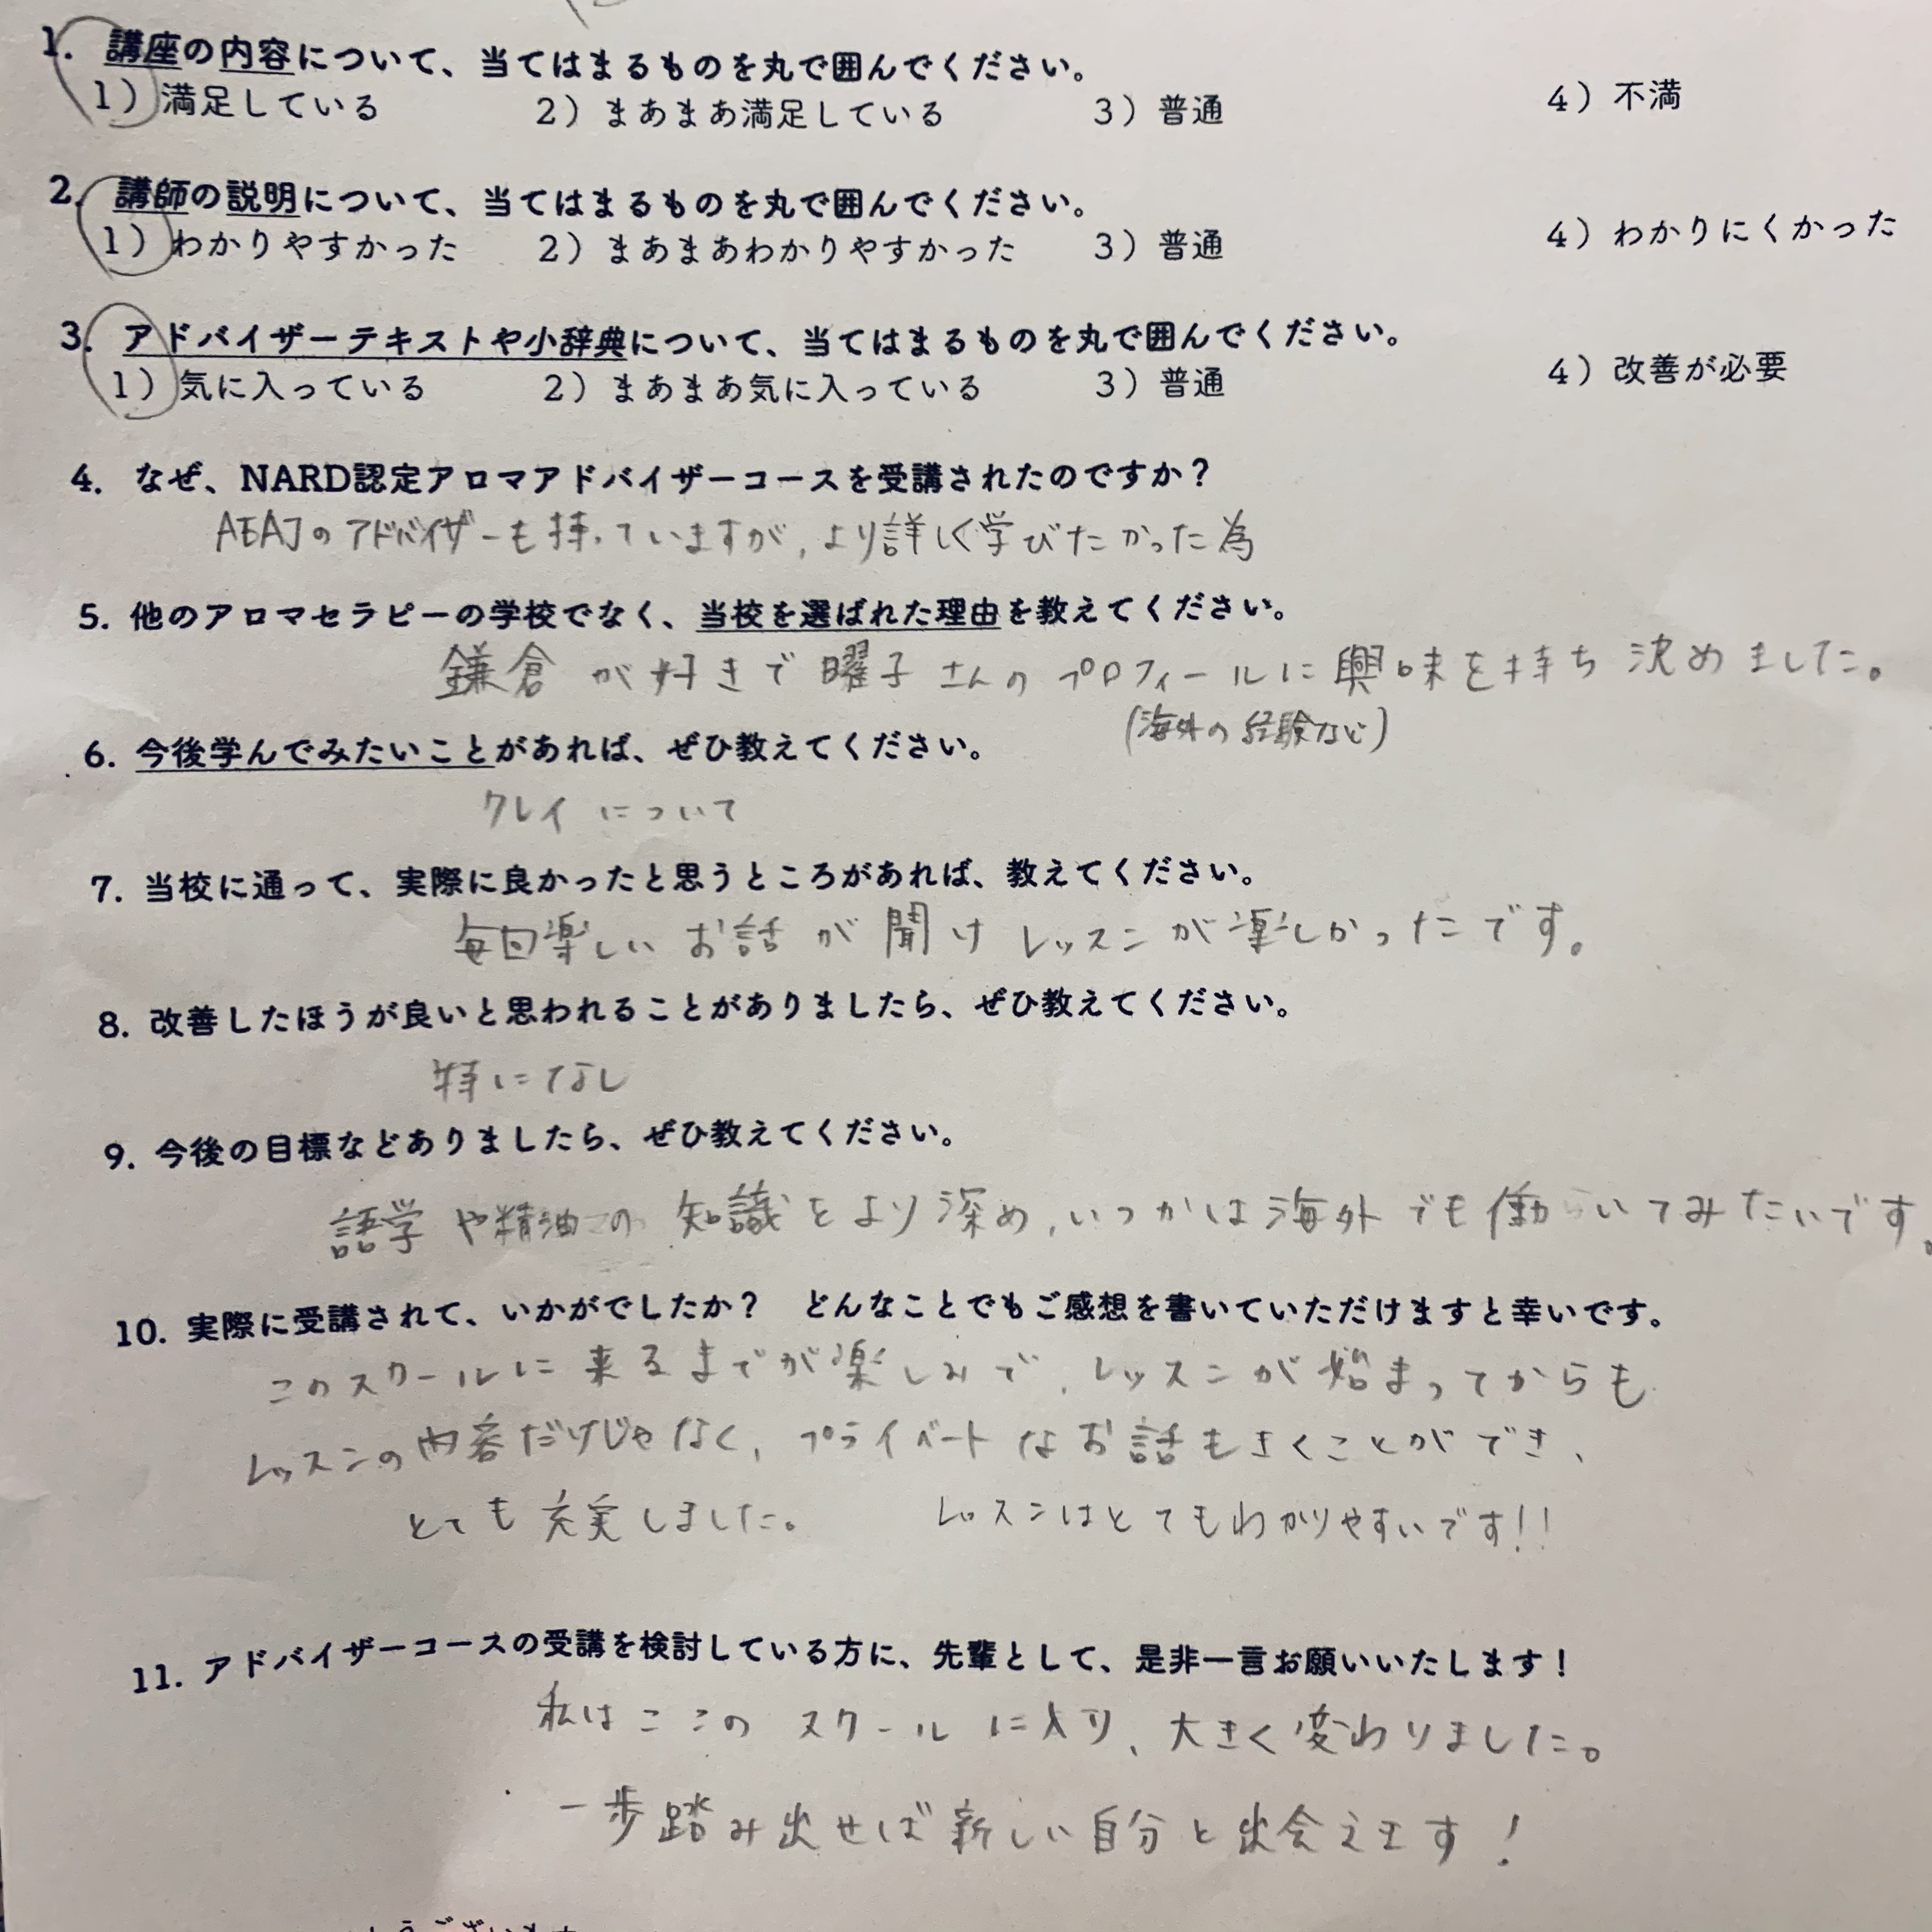 1. 講座の内容について、当てはまるものを丸で囲んでください。
1）満足している 2）まあまあ満足している 3）普通 4）不満
2. 講師の説明について、当てはまるものを丸で囲んでください。
1）わかりやすかった 2）まあまあわかりやすかった 3）普通 4）わかりにくかった
3. アドバイザーテキストや小辞典について、当てはまるものを丸で囲んでください。
1）気に入っている 2）まあまあ気に入っている 3）普通 4）改善が必要
4. なぜ、NARD認定アロマアドバイザーコースを受講されたのですか？
AEAJのアドバイザーも持っていますが、より詳しく学びたかった為
5. 他のアロマセラピーの学校でなく、当校を選ばれた理由を教えてください。
鎌倉が好きで曜子さんのプロフィールに興味を持ち決めました。
(海外の経験など)
6. 今後学んでみたいことがあれば、ぜひ教えてください。
クレイについて
7. 当校に通って、実際に良かったと思うところがあれば、教えてください。
毎回楽しいお話が聞けレッスンが楽しかったです。
8. 改善したほうが良いと思われることがありましたら、ぜひ教えてください。
特になし
9. 今後の目標などありましたら、ぜひ教えてください。
語学や精油の知識をより深め、いつかは海外でも働いてみたいです。
10. 実際に受講されて、いかがでしたか？ どんなことでもご感想を書いていただけますと幸いです。
このスクールに来るまでが楽しみで、レッスンが始まってからも
レッスンの内容だけじゃなく、プライベートなお話もきくことができ、
とても充実しました。 レッスンはとてもわかりやすいです!!
11. アドバイザーコースの受講を検討している方に、先輩として、是非一言お願いいたします！
私はここのスクールに入り、大きく変わりました。
一歩踏み出せば新しい自分と出会えます！